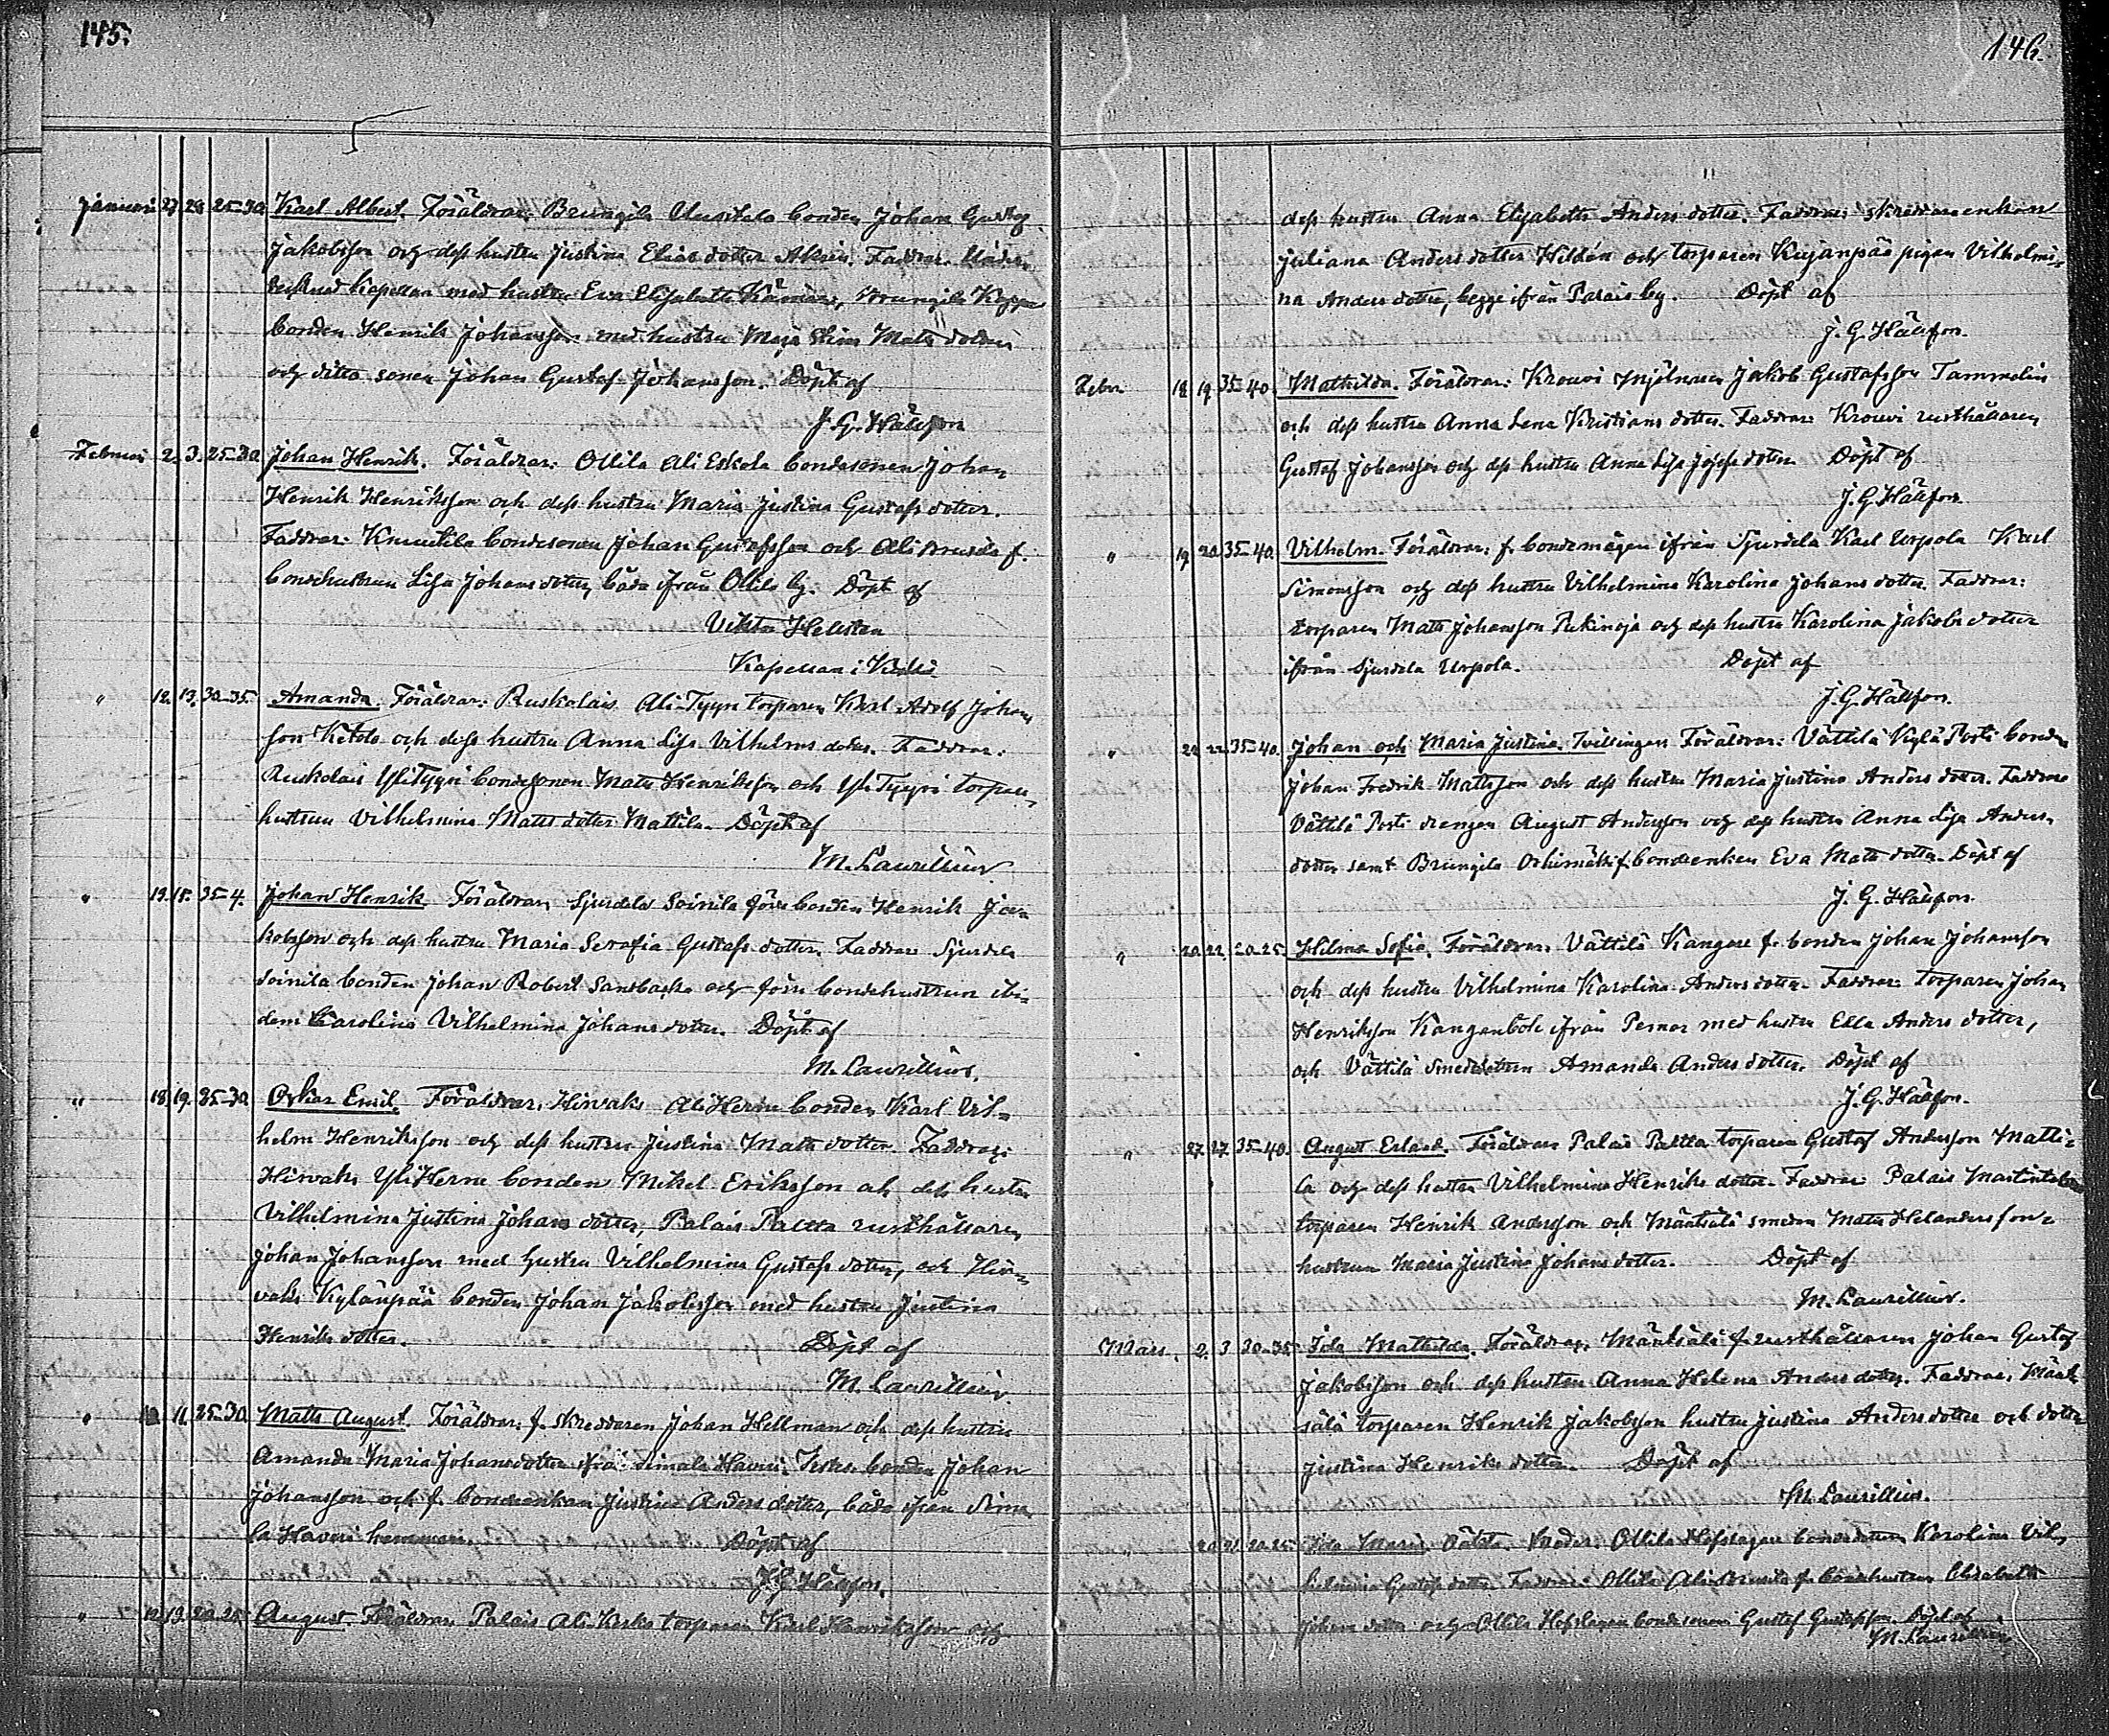 145.
Januari 27. 28. 25-30. Karl Albert. Föräldrar: Brungila Uusitalo bonden Johan Gustaf
Jakobsson och dess hustru Justina Elias dotter Akris. Faddrar: Under-
tecknad kapellan med hustru Eva Elisabeth, Brungila Kappa
bonden Henrik Johansson med hustru Maja Stina Mats dotter
och ditto sonen Johan Gustaf Johansson. Döpt af
J. G. Hällfors
Februari 2. 3. 25-30. Johan Henrik. Föräldrar: Ollila Ali Eskola bondesonen Johan
Henrik Henriksson och dess hustru Maria Justina Gustafs dotter.
Faddrar: Knuutila bondesonen Johan Gustafsson och Ali f.
bondehustrun Lisa Johans dotter, båda ifrån Ollila by. Döpt af
Viktor Hellsten
Kapellan i
" 12. 13. 30-35. Amanda. Föräldrar: Ruskolais Ali-Tyyri torparen Karl Adolf Johans
son Ketola och dess hustru Anna Lisa Vilhelms dotter. Faddrar:
Ruskolais YliTyyri bondesonen Mats Henriksson och YliTyyri torpare
hustrun Vilhelmina Mats dotter Mattila. Döpt af
M. Laurellius
" 13. 15. 35-4. Johan Henrik Föräldrar: Sjurdela Soinila förra bonden Henrik Ja-
kobsson och dess hustru Maria Serafia Gustafs dotter. Faddrar: Sjurdela
Soinila bonden Johan Robert Sandbacka och förra bondehustrun ibi-
dem Karolina Vilhelmina Johans dotter. Döpt af
M. Laurellius.
" 18. 19. 25-30. Oskar Emil. Föräldrar: Hirvaks Ali Herru bonden Karl Vil-
helm Henriksson och dess hustru Justina Mats dotter. Faddrar:
Hirvaks YliHerru bonden Mikel Eriksson och dess hustru
Vilhelmina Justina Johans dotter, Palais Paltta rusthållaren
Johan Johansson med hustru Vilhelmina Gustafs dotter, och Hir-
vaks Kylänpää bonden Johan Jakobsson med hustru Justina
Henriks dotter. Döpt af
M. Laurellius
" 10. 11. 25-30. Matts August. Föräldrar: f. skreddaren Johan Hellman och dess hustru
Amanda Maria Johansdotter ifrån Simala Haveri. Testes: bonden Johan
Johansson och f. bondeenkan Justina Anders dotter, båda ifrån Sima-
la Haveri hemman. Döpt af
J. G. Hällfors.
" 12. 13. 20-25. August. Föräldrar: Palais Ali Kesko torparen Karl Henriksson och
146.
dess hustru Anna Elisabeth Anders dotter. Faddrar: skreddareenkan
Juliana Anders dotter Hildén och torparen Kujanpää pigan Vilhelmi-
na Anders dotter, begge ifrån Palais by. Döpt af
J. G. Hällfors.
Febr. 18. 19. 35-40. Mathilda. Föräldrar: Krouvi mjölnaren Jakob Gustafsson Tammelin
och dess hustru Anna Lena Kristians dotter. Faddrar: Krouvi rusthållaren
Gustaf Johansson och dess hustru Anna Lisa Josefs dotter. Döpt af
J. G. Hällfors
" 19. 20. 35-40. Vilhelm. Föräldrar: f. bondemågen ifrån Sjurdela Karl Urpola Karl
Simonsson och dess hustru Vilhelmina Karolina Johans dotter. Faddrar:
torparen Matts Johansson Pukinoja och dess hustru Karolina Jakobs dotter
ifrån Sjurdela Urpola. Döpt af
J. G. Hällfors.
" 22. 22. 35-40. Johan och Maria Justina. Tvillingar. Föräldrar: Vättilä Kylä Posti bonden
Johan Fredrik Mattsson och dess hustru Maria Justina Anders dotter. Faddrar:
Vättilä Posti drengen August Andersson och dess hustru Anna Lisa Anders
dotter samt Brungila Orhimäki f. bondeenkan Eva Mats dotter. Döpt af
J. G. Hällfors.
" 20. 22. 20-25. Helma Sofia. Föräldrar: Vättilä Kangare f. bonden Johan Johansson
och dess hustru Vilhelmina Karolina Anders dotter. Faddrar: torparen Johan
Henriksson ifrån Pemar med hustru Edla Anders dotter,
och Vättilä Amanda Anders dotter. Döpt af
J. G. Hällfors.
" 27. 27. 35-40. August Erland. Föräldrar: Palais Paltta torparen Gustaf Andersson Matti-
la och dess hustru Vilhelmina Henriks dotter. Faddrar: Palais Martintalo
torparen Henrik Andersson och Märtsälä smeden Matts Helanders son-
hustrun Maria Justina Johans dotter. Döpt af
M. Laurellius.
Mars. 2. 3. 30-35. Ida Mathilda. Föräldrar: Märtsälä f. rusthållaren Johan Gustaf
Jakobsson och dess hustru Anna Helena Anders dotter. Faddrar: Märt-
sälä torparen Henrik Jakobsson hustru Justina Anders dotter och dotter
Justina Henriks dotter. Döpt af
M. Laurellius.
" 20. 21. 20-25. Ida Maria. Oäkta. Moder: Ollila Hofslagare bondedottern Karolina Vil-
helmina Gustafs dotter. Faddrar: Ollila Ali f. bondehustrun Elisabeth
Johans dotter och Ollila Hofslagare bondesonen Gustaf Gustafsson. Döpt af
M. Laurellius